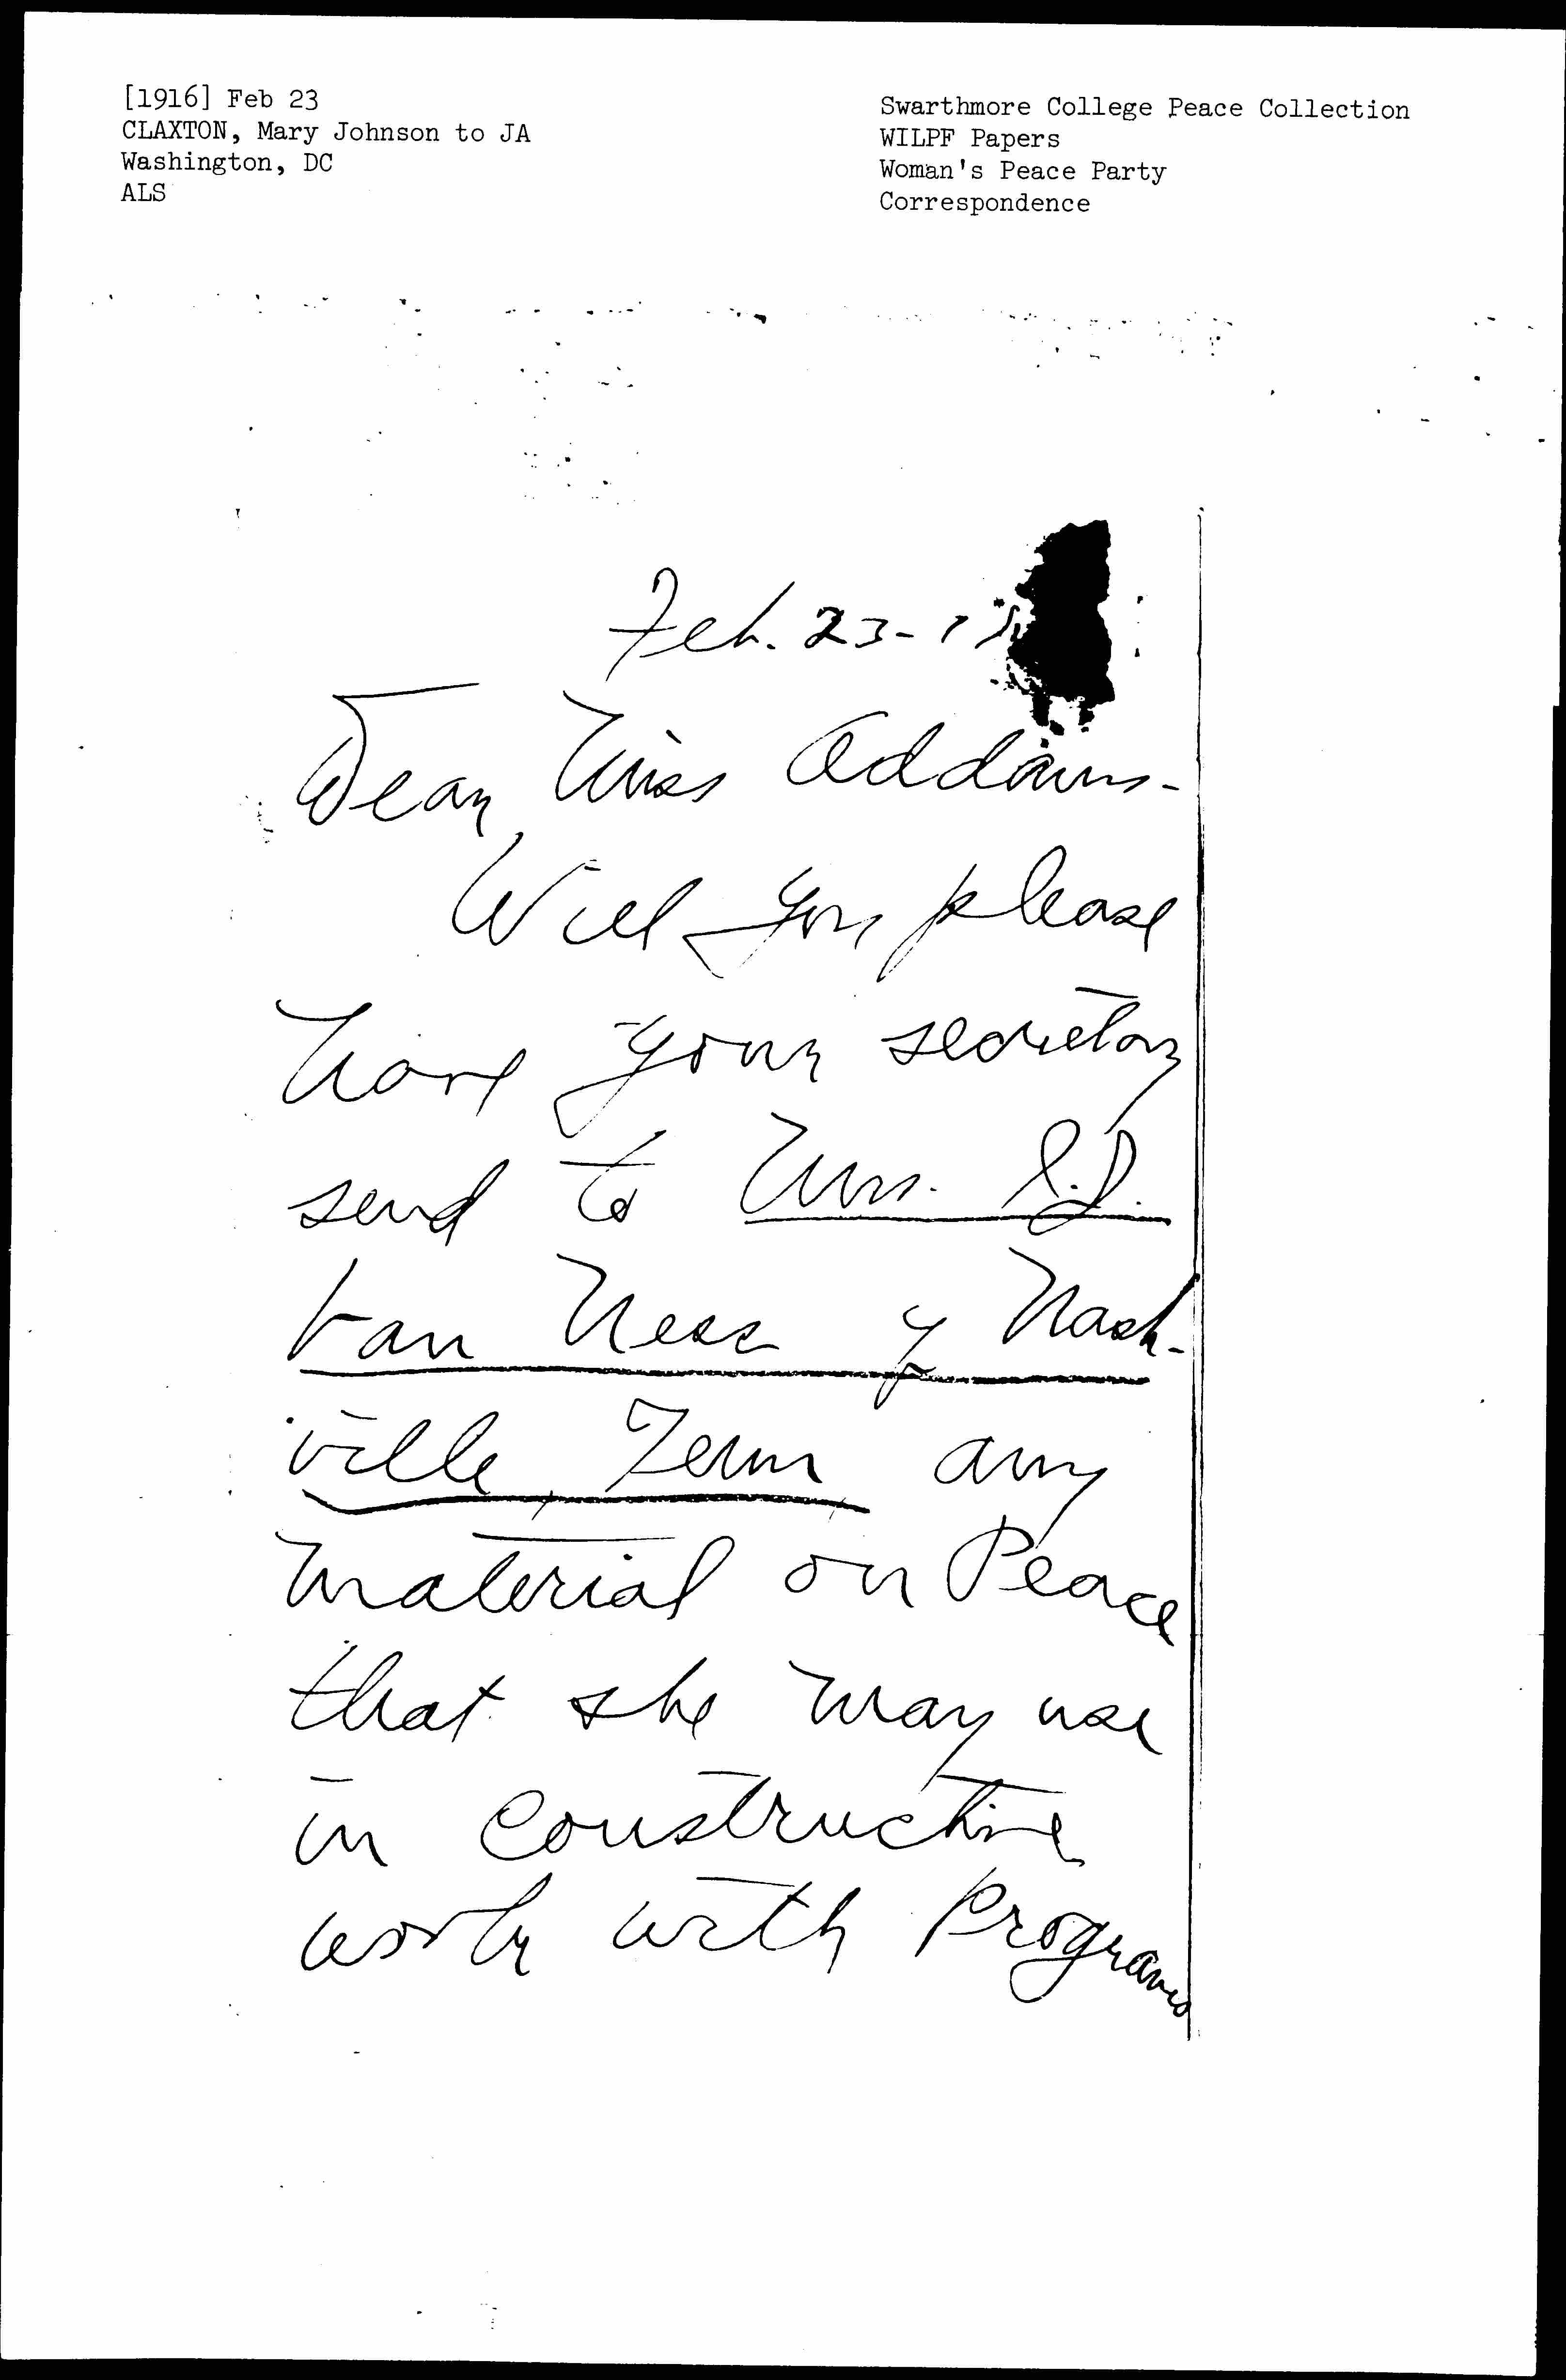 [1916] Feb 23
CLAXTON, Mary Johnson to JA
Washington, DC
ALS
Swarthmore College Peace Collection
WILPF Papers
Woman's Peace Party
Correspondence
Feb. 23-1
Dear Miss Addams-
Will you please
have your secretary
send to Mrs. I.J.
Van Ness of Nash-
ville, Tenn any
material on Peace
that she may use
in constructive
work with Programs